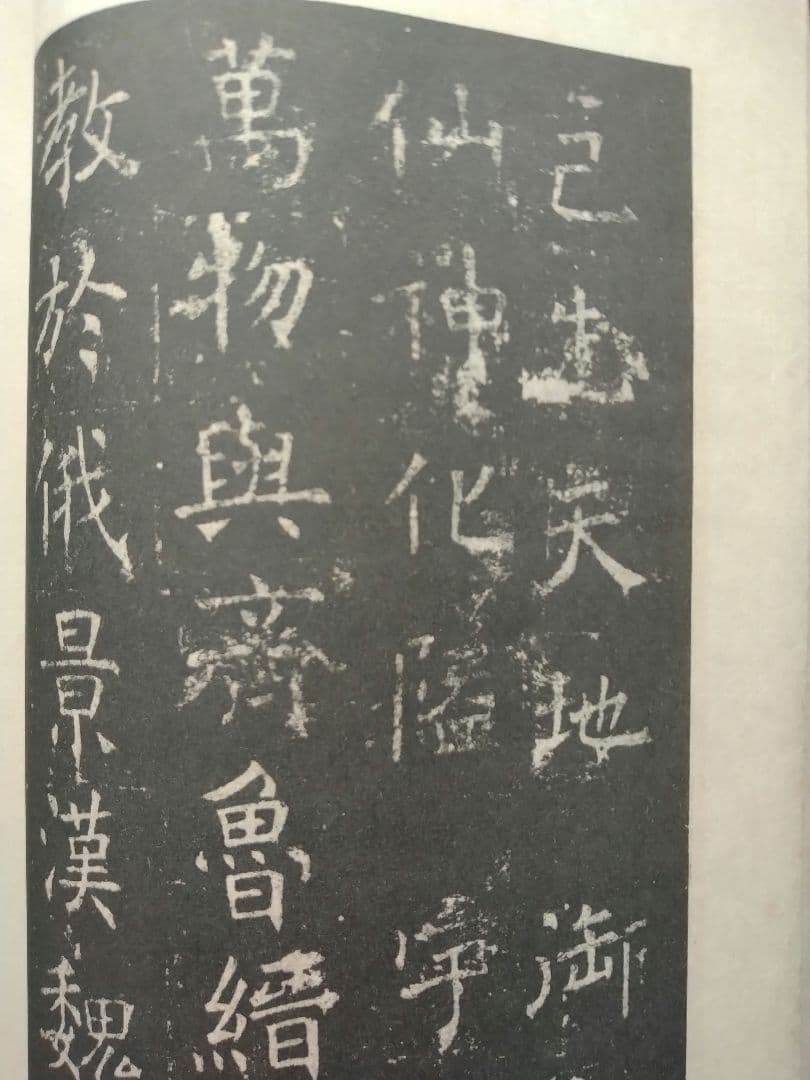 己出天地御
仙神化陰宇
萬物與齊魯縉
教於俄景漢魏